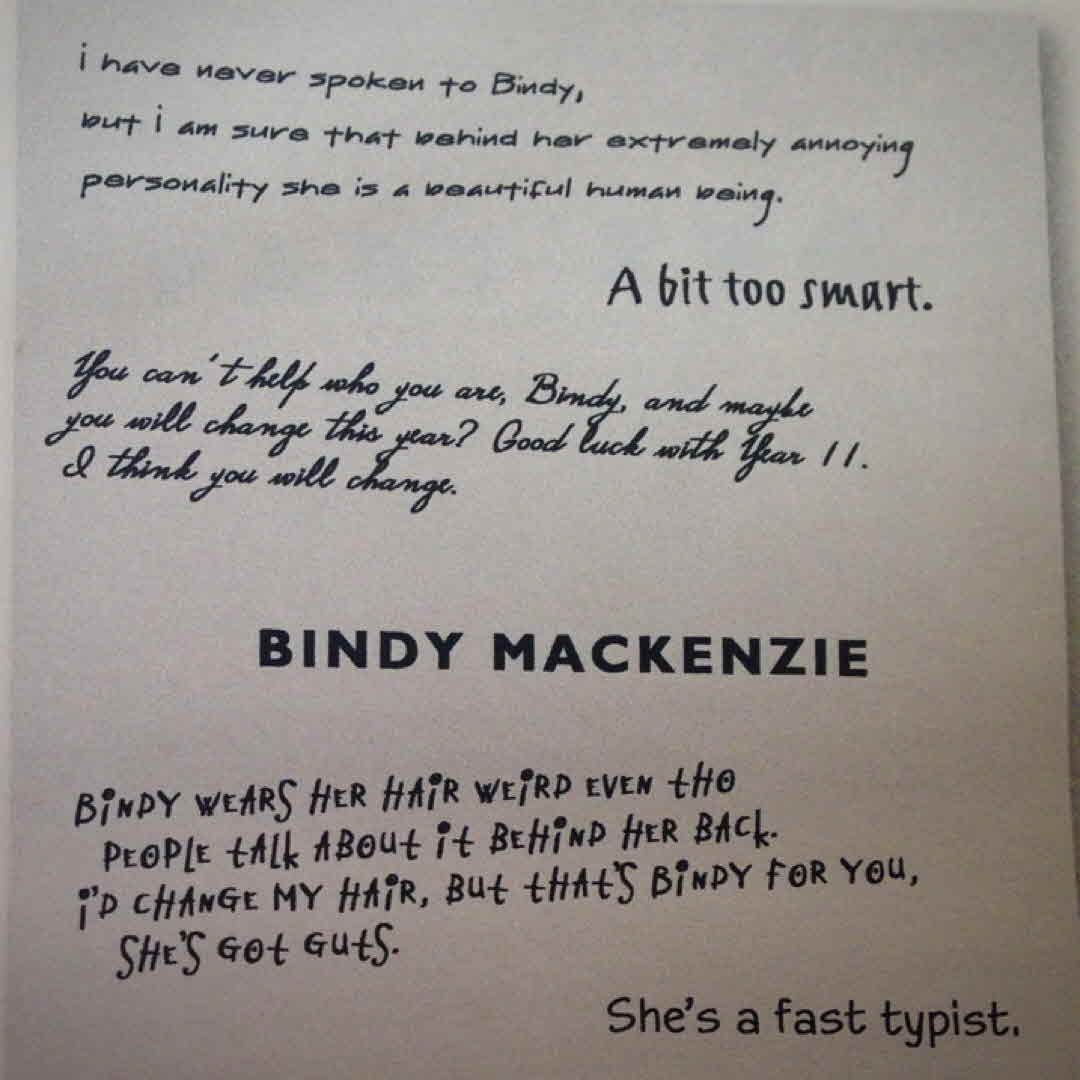 i have never spoken to Bindy,
but i am sure that behind her extremely annoying
personality she is a beautiful human being.
A bit too smart.
You can't help who you are, Bindy, and maybe
you will change this year? Good luck with Year 11.
I think you will change.
BINDY MACKENZIE
BiNDY WEARS HER HAiR WEiRD EVEN tHO
PEOPLE tALk ABOUt it BEHiND HER BACk.
i'D CHANGE MY HAiR, BUt tHAt'S BiNDY FOR YOU,
SHE'S GOt GUtS.
She's a fast typist.